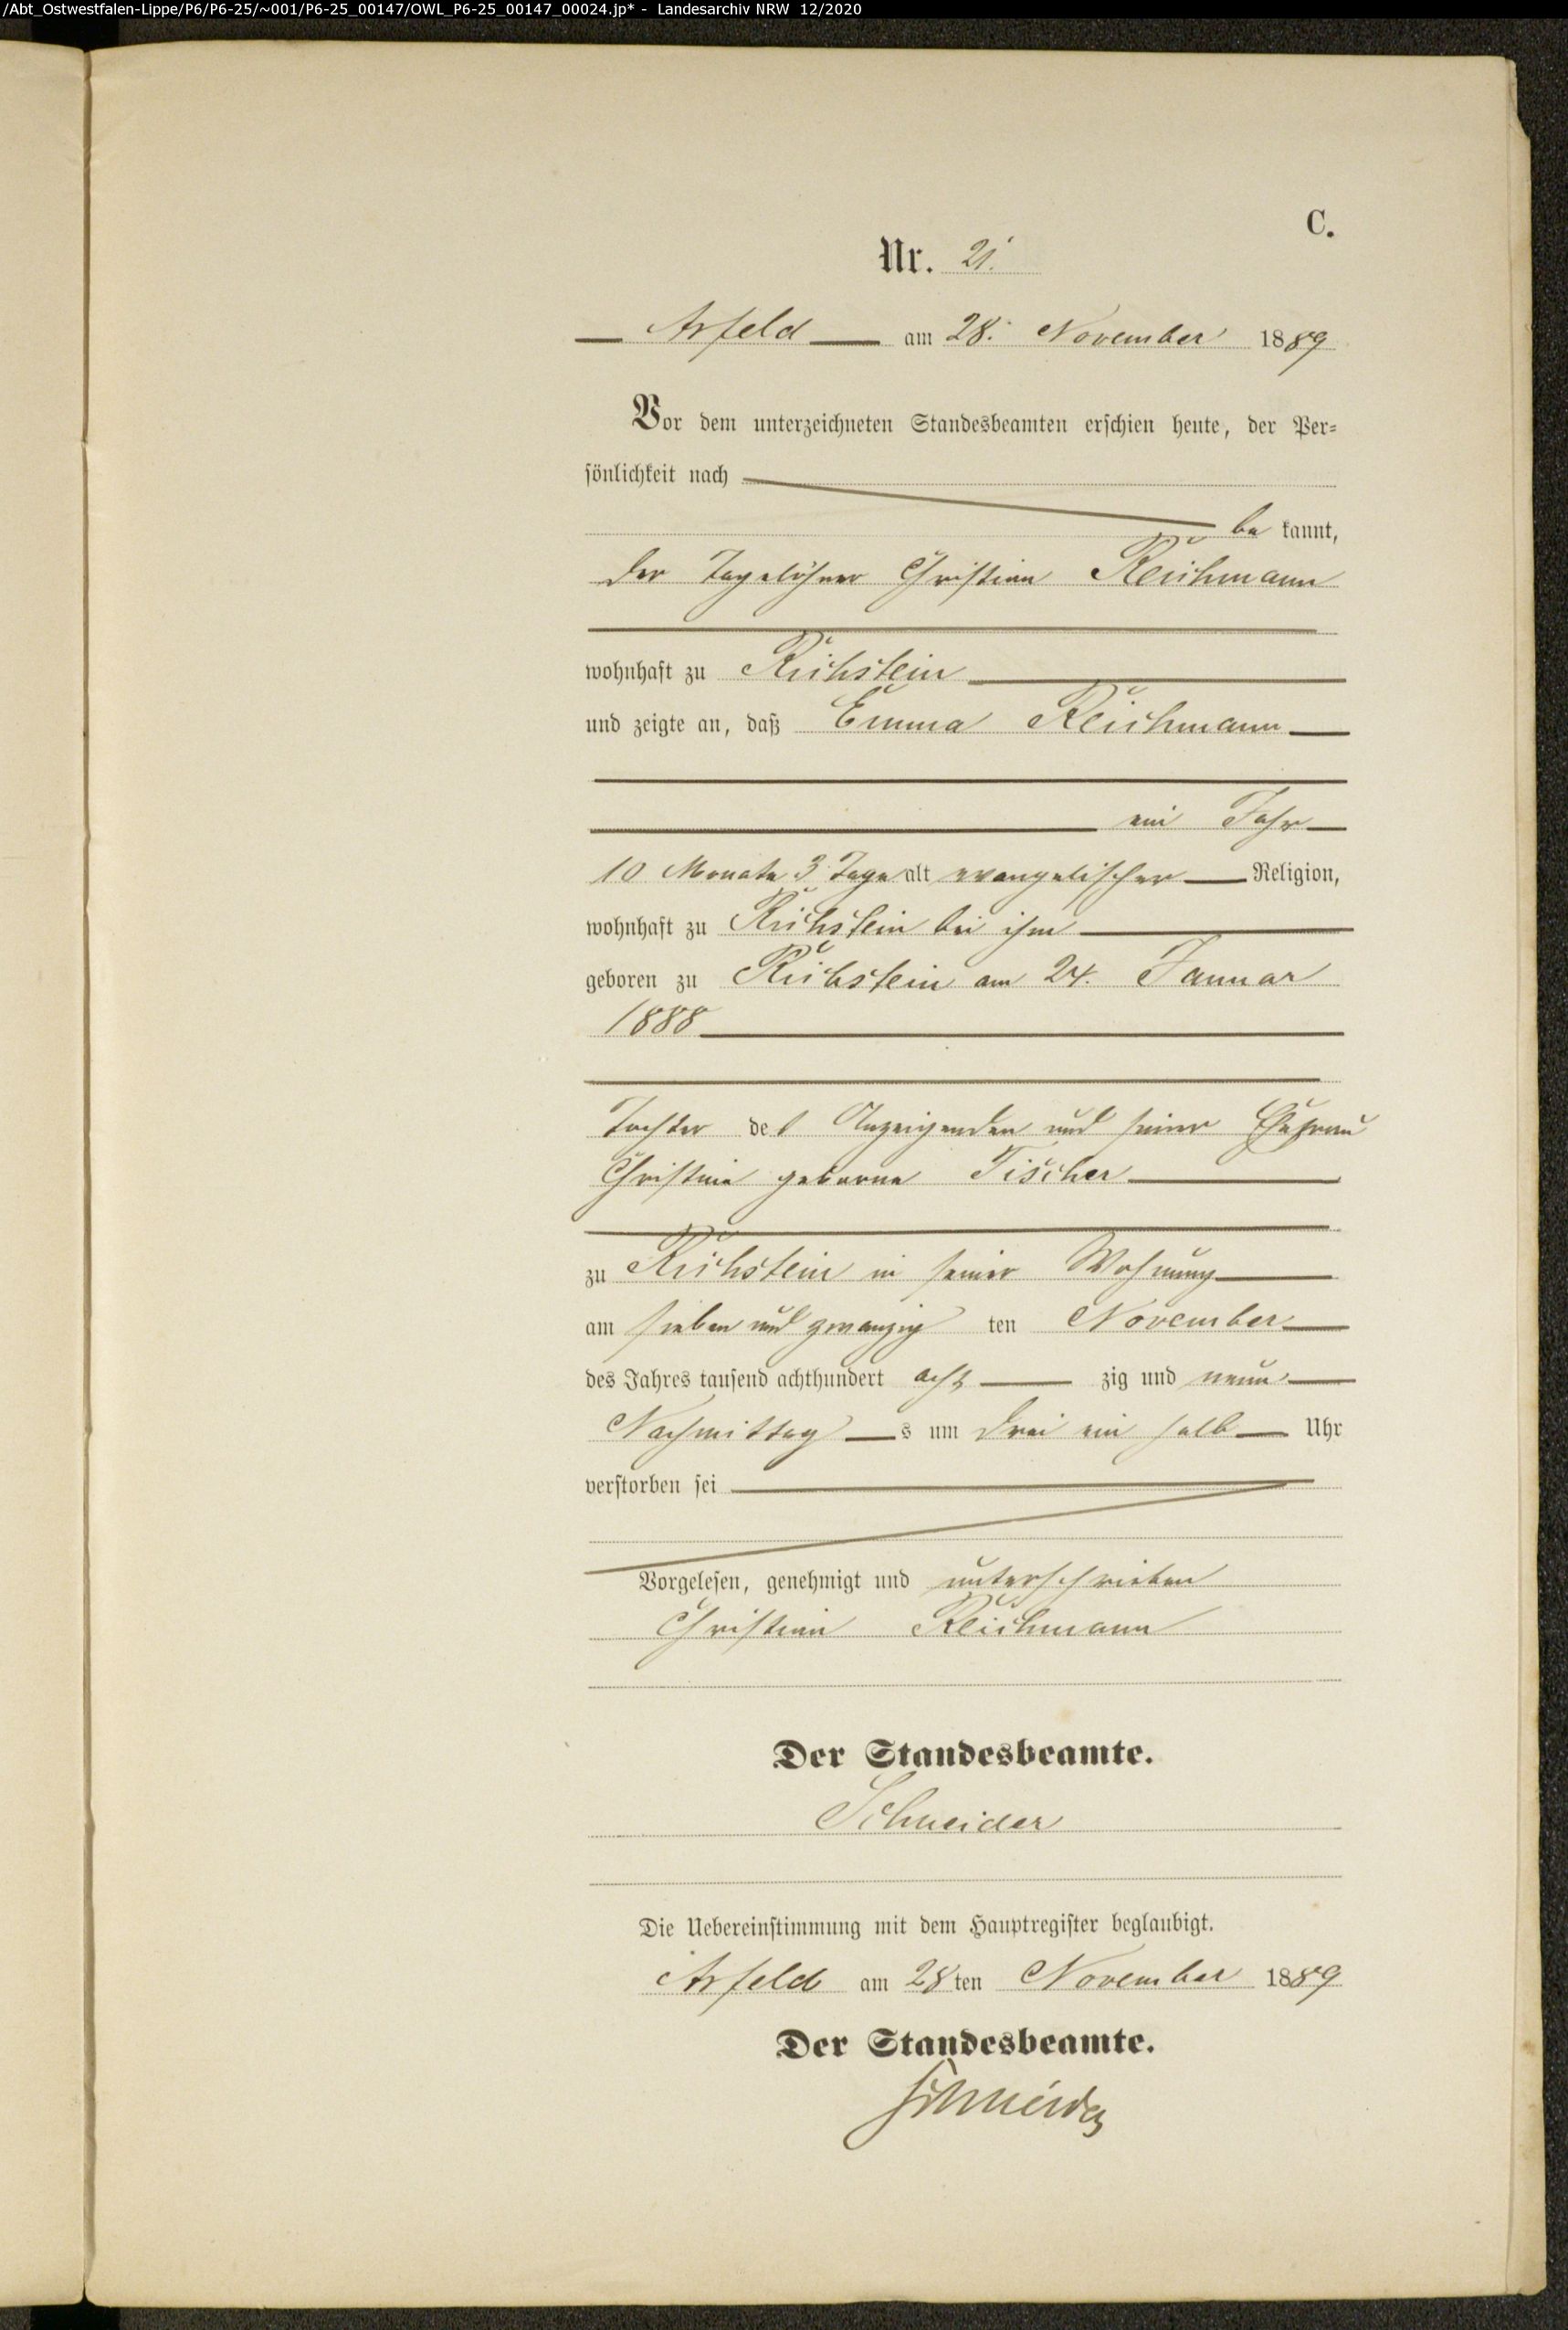 /Abt_Ostwestfalen-Lippe/P6/P6-25/~001/P6-25_00147/OWL_P6-25_00147_00024.jp* - Landesarchiv NRW 12/2020
C.
Nr. 21.
Arfeld am 28. November 1889
Vor dem unterzeichneten Standesbeamten erschien heute, der Per=
sönlichkeit nach
be kannt,
der Tagelöhner Christian Reichmann
wohnhaft zu Richstein
und zeigte an, daß Emma Reichmann
ein Jahr
10 Monate 3 Tage alt evangelischer Religion,
wohnhaft zu Richstein bei ihm
geboren zu Richstein am 24. Januar
1888
Tochter des Anzeigenden und seiner Ehefrau
Christine geborne Fischer
zu Richstein in seiner Wohnung
am sieben und zwanzig ten November
des Jahres tausend achthundert acht zig und neun
Nachmittag s um drei ein halb Uhr
verstorben sei
Vorgelesen, genehmigt und unterschrieben
Christian Reichmann
Der Standesbeamte.
Schneider
Die Uebereinstimmung mit dem Hauptregister beglaubigt.
Arfeld am 28 ten November 1889
Der Standesbeamte.
Schneider